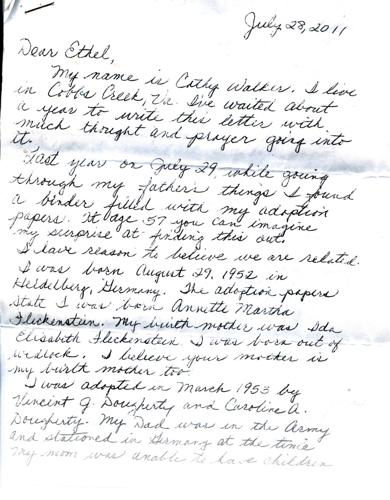 July 28, 2011
Dear Ethel,
My name is Cathy Walker. I live
in Cobbs Creek, Va. I've waited about
a year to write this letter with
much thought and prayer going into
it.
Last year on July 29, while going
through my father's things I found
a binder filled with my adoption
papers. At age 57 you can imagine
my surprise at finding this out.
I have reason to believe we are related.
I was born August 29, 1952 in
Heidelberg, Germany. The adoption papers
state I was born Annette Martha
Fleckenstein. My birth mother was Ida
Elisabeth Fleckenstein. I was born out of
wedlock. I believe your mother is
my birth mother too.
I was adopted in March 1953 by
Vincent G. Dougherty and Caroline A.
Dougherty. My Dad was in the Army
and stationed in Germany at the time
My mom was unable to have children